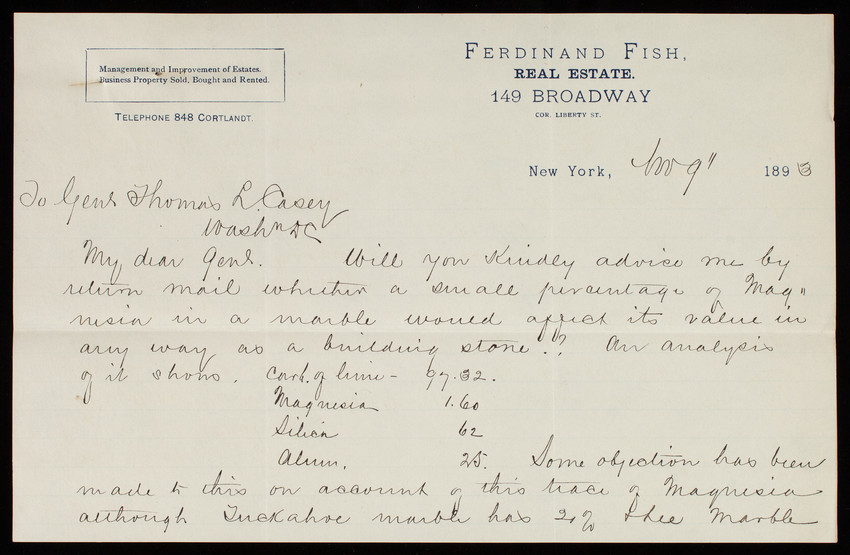 Management and Improvement of Estates.
Business Property Sold, Bought and Rented.
TELEPHONE 848 CORTLANDT.
FERDINAND FISH,
REAL ESTATE.
149 BROADWAY
COR. LIBERTY ST.
New York, Nov 9" 1893
To Genl Thomas L. Casey
Washn DC
My dear Genl. Will you Kindly advice me by
return mail whether a small percentage of Mag"
nesia in a marble would affect its value in
any way as a building stone!? An analysis
of it shows. Carb. of lime – 97.32.
Magnesia 1.60
Silica 62
Alum. 25. Some objection has been
made to this on account of this trace of Magnesia
although Tuckahoe marble has 20% & hee Marble